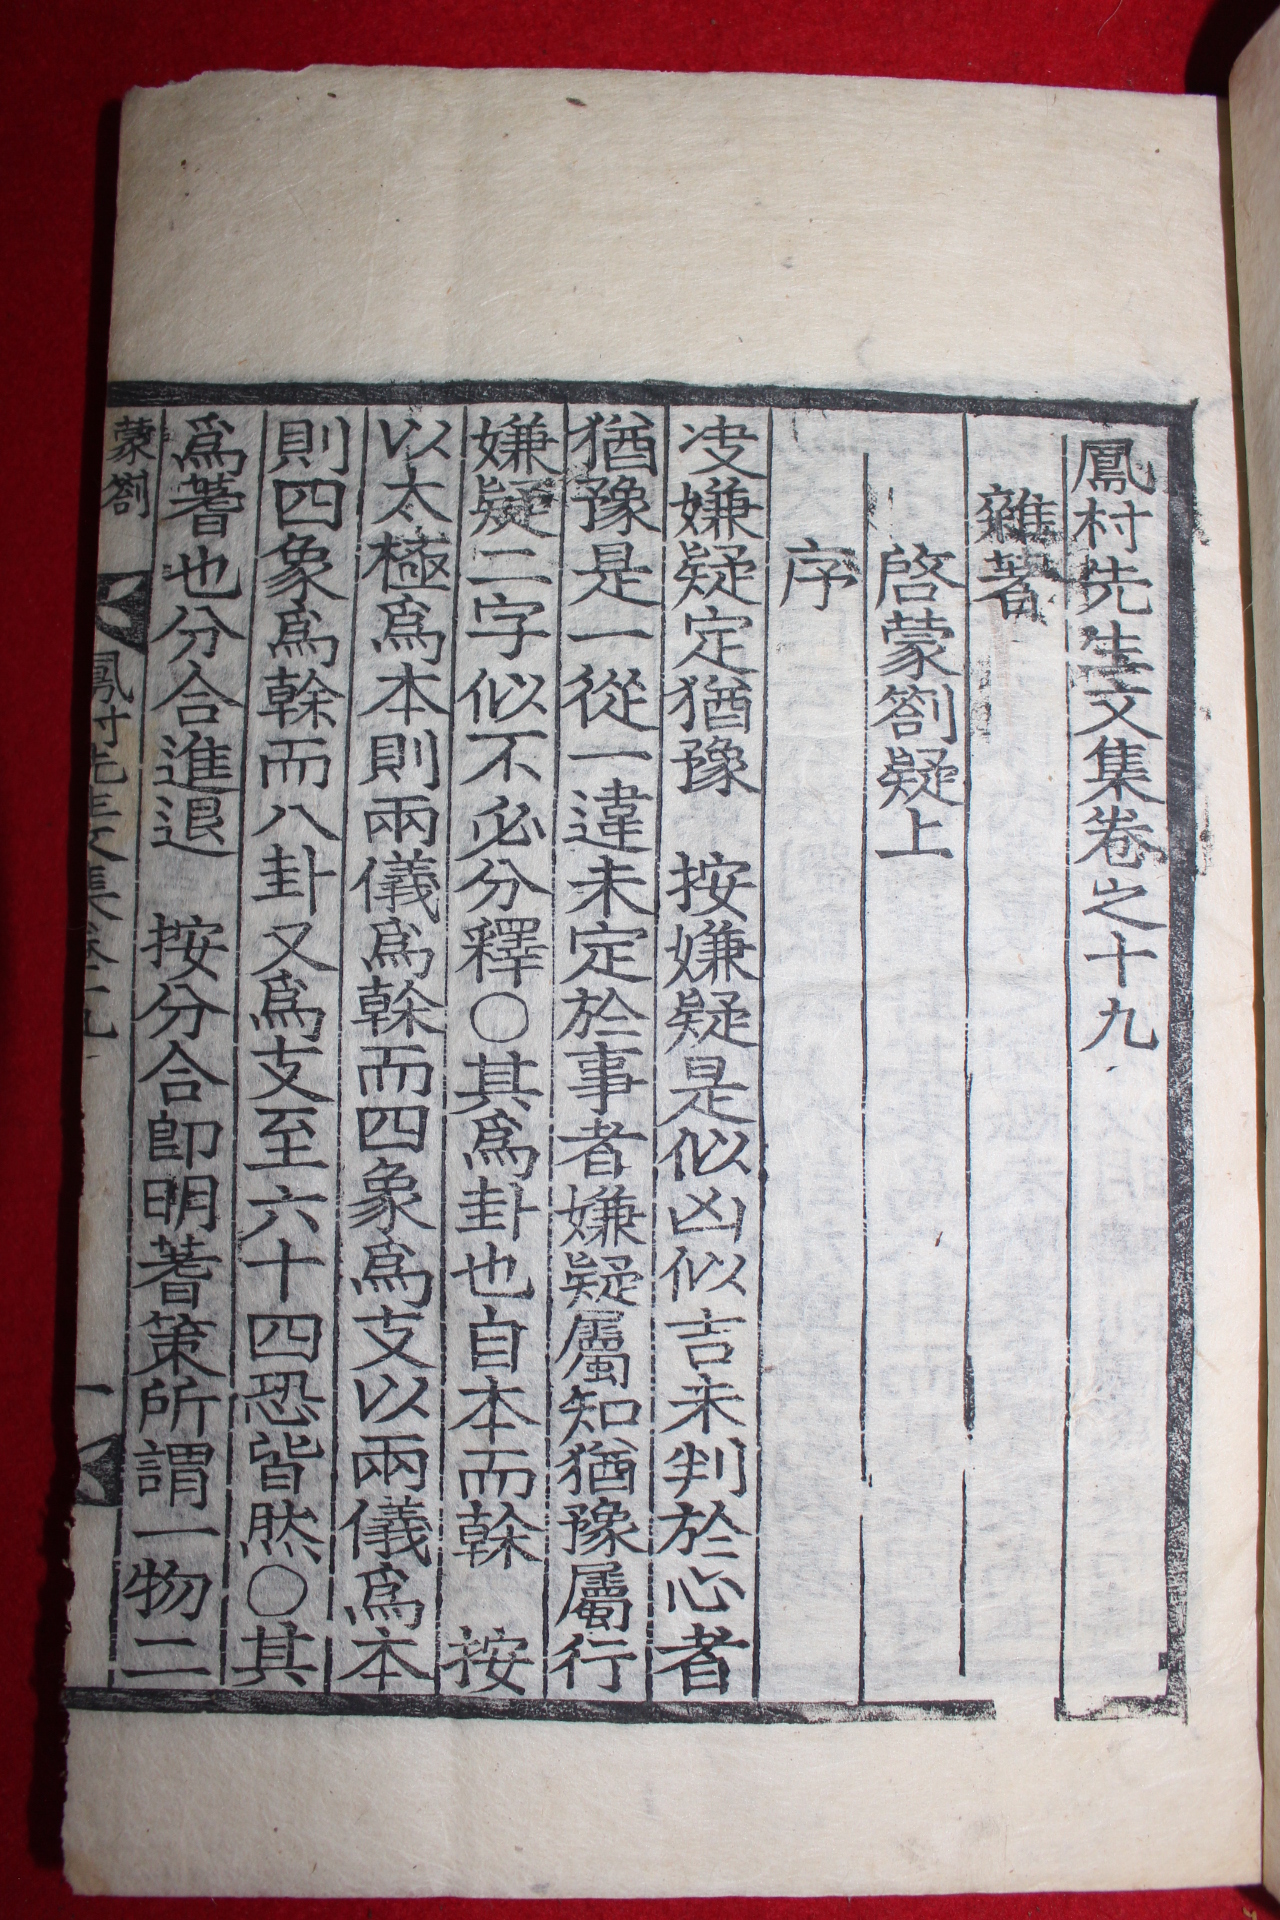 鳳村先生文集卷之十九
雜著
啓蒙劄疑上
序
决嫌疑定猶豫 按嫌疑是似凶似吉未判於心者
猶豫是一從一違未定於事者嫌疑屬知猶豫屬行
嫌疑二字似不必分釋○其爲卦也自本而榦 按
以太極爲本則兩儀爲榦而四象爲支以兩儀爲本
則四象爲榦而八卦又爲支至六十四恐皆然○其
爲蓍也分合進退 按分合卽明蓍策所謂一物二
蒙劄 鳳村先生文集卷十九 一